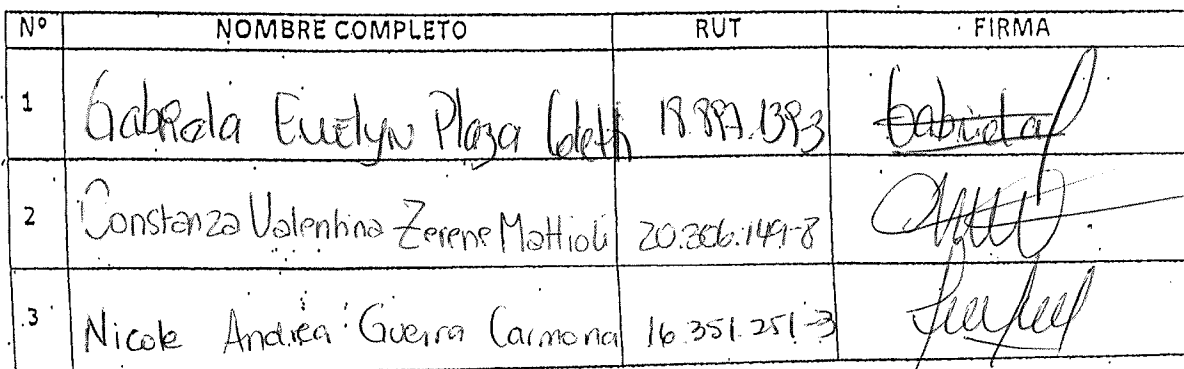 Nº NOMBRE COMPLETO RUT FIRMA
1 Gabriela Evelyn Plaza 18.897.139-3 Gabriela
2 Constanza Valentina Zerene Mattioli 20.206.149-8
3 Nicole Andrea Guerra Carmona 16.351.251-3